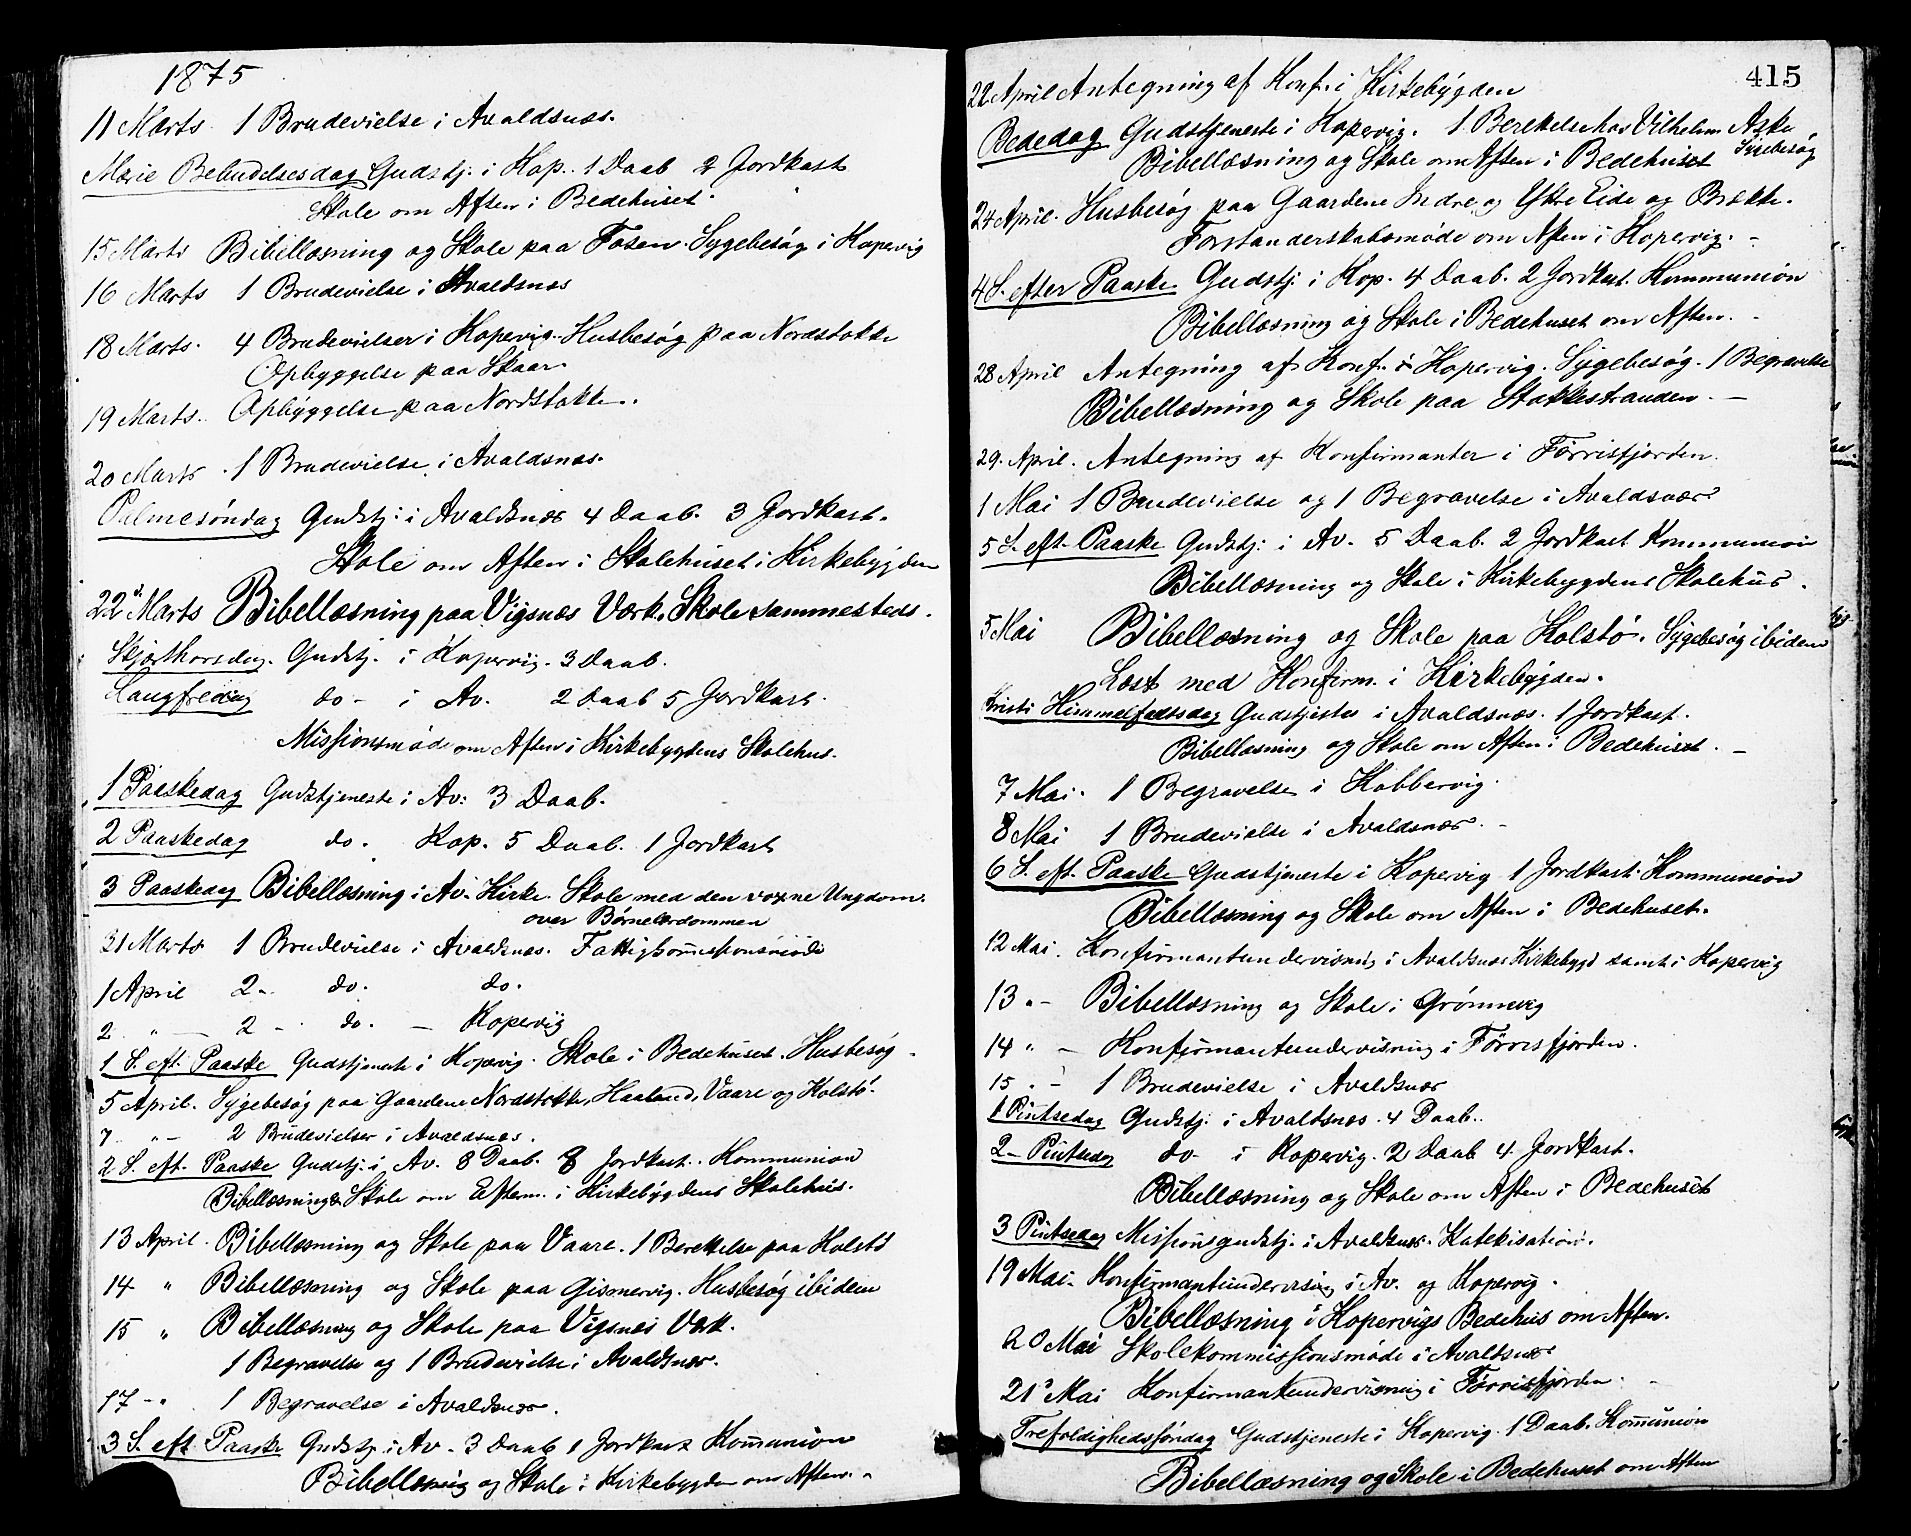 1875
11 Marts. 1 Brudevielse i Avaldsnæs.
Marie Bebudelsesdag Gudstj. i Kop. 1 Daab 2 Jordkast
Skole om Aften i Bedehuset.
15 Marts Bibellæsning og Skole paa Fosen. Sygebesøg i Kopervig
16 Marts 1 Brudevielse i Avaldsnæs
18 Marts. 4 Brudevielser i Kopervig. Husbesøg paa Nordstokke
Opbyggelse paa Skaar.
19 Marts. Opbyggelse paa Nordstokke.
20 Marts. 1 Brudevielse i Avaldsnæs.
Palmesøndag Gudstj. i Avaldsnæs 4 Daab. 3 Jordkast.
Skole om Aften i Skolehuset i Kirkebygden
22 Marts Bibellæsning paa Vigsnæs Værk. Skole sammesteds.
Skjærthorsdag. Gudstj. i Kopervig. 3 Daab.
Langfredag do - i Av. 2 Daab 5 Jordkast.
Missionsmøde om Aften i Kirkebygdens Skolehus.
1 Paaskedag Gudstjeneste i Av: 3 Daab.
2 Paaskedag do. Kop. 5 Daab. 1 Jordkast
3 Paaskedag Bibellæsning i Av. Kirke. Skole med den voxne Ungdom.
over Børnelærdommen
31 Marts 1 Brudevielse i Avaldsnæs. Fattigkommissionsmøde
1 April 2 - do. do.
2 " - 2 - do. - Kopervig
1 S. eft. Paaske Gudstjeneste i Kopervig. Skole i Bedehuset. Husbesøg
5 April. Sygebesøg paa Gaardene Nordstokke, Haaland, Vaare og Kolstø.
7 " - 2 Brudevielser i Avaldsnæs.
2 S. eft. Paaske Gudstj. i Av. 8 Daab. 8 Jordkast. Kommunion
Bibellæsning & Skole om Efterm. i Kirkebygdens Skolehus.
13 April. Bibellæsning og Skole paa Vaare. 1 Berettelse paa Kolstø
14 " Bibellæsning og Skole paa Gismervig. Husbesøg ibidem
15 " Bibellæsning og Skole paa Vigsnæs Værk.
1 Begravelse og 1 Brudevielse i Avaldsnæs.
17 - " 1 Begravelse i Avaldsnæs.
3 S. eft. Paaske Gudstj. i Av. 3 Daab 1 Jordkast Kommunion
Bibellæsning og Skole i Kirkebygden om Aften.
415
22 April Antegning af Konf. i Kirkebygden
Bededag Gudstjeneste i Kopervig. 1 Berettelse hos Vilhelm Aske
Sygebesøg
Bibellæsning og Skole om Aften i Bedehuset
24 April. Husbesøg paa Gaardene Indre og Ytre Eide og Brække.
Forstanderskabsmøde om Aften i Kopervig.
4 S. efter Paaske Gudstj. i Kop. 4 Daab. 2 Jordkast. Kommunion
Bibellæsning og Skole i Bedehuset om Aften.
28 April Antegning af Konf. i Kopervig. Sygebesøg. 1 Begravelse
Bibellæsning og Skole paa Stokkestranden.
29. April. Antegning af Konfirmanter i Førrisfjorden.
1 Mai 1 Brudevielse og 1 Begravelse i Avaldsnæs
5 S. eft. Paaske Gudstj. i Av. 5 Daab. 2 Jordkast Kommunion
Bibellæsning og Skole i Kirkebygdens Skolehus.
5 Mai Bibellæsning og Skole paa Kolstø. Sygebesøg ibidem
Læst med Konfirm. i Kirkebygden.
Kristi Himmelfartsdag Gudstjeste i Avaldsnæs. 1 Jordkast.
Bibellæsning og Skole om Aften i Bedehuset.
7 Mai. 1 Begravelse i Kobbervig.
8 Mai 1 Brudevielse i Avaldsnæs.
6 S. eft. Paaske Gudstjeneste i Kopervig 1 Jordkast. Kommunion
Bibellæsning og Skole om Aften i Bedehuset.
12 Mai. Konfirmantundervisning i Avaldsnæs Kirkebygd samt i Kopervig
13 " - Bibellæsning og Skole i Grønnevig
14 " - Konfirmantundervisning i Førrisfjorden.
15 " - 1 Brudevielse i Avaldsnæs
1 Pintsedag Gudstj. i Avaldsnæs. 4 Daab.
2 - Pintsedag do - i Kopervig. 2 Daab 4 Jordkast.
Bibellæsning og Skole om Aften i Bedehuset
3 Pintsedag Missionsgudstj. i Avaldsnæs. Katekisation.
19 Mai. Konfirmantundervisning i Av. og Kopervig.
Bibellæsning i Kopervigs Bedehus om Aften.
20 Mai Skolekommissionsmøde i Avaldsnæs
21 Mai Konfirmantundervisning i Førrisfjorden.
Trefoldighedssøndag Gudstjeneste i Kopervig. 1 Daab. Kommunion
Bibellæsning og Skole i Bedehuset om Aften